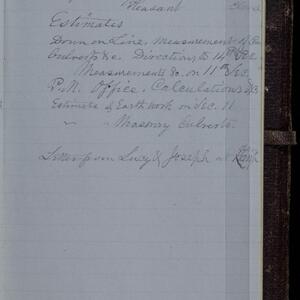 Pleasant
Estimates
Down on Line, Measurement of
Culverts &c. Directions to 14th Sec
Measurements &c. on 11th Sec.
P.M. Office, Calculations
Estimate of Earthwork on Sec. 11
" " Masonry Culverts
Letter from Lucy & Joseph at